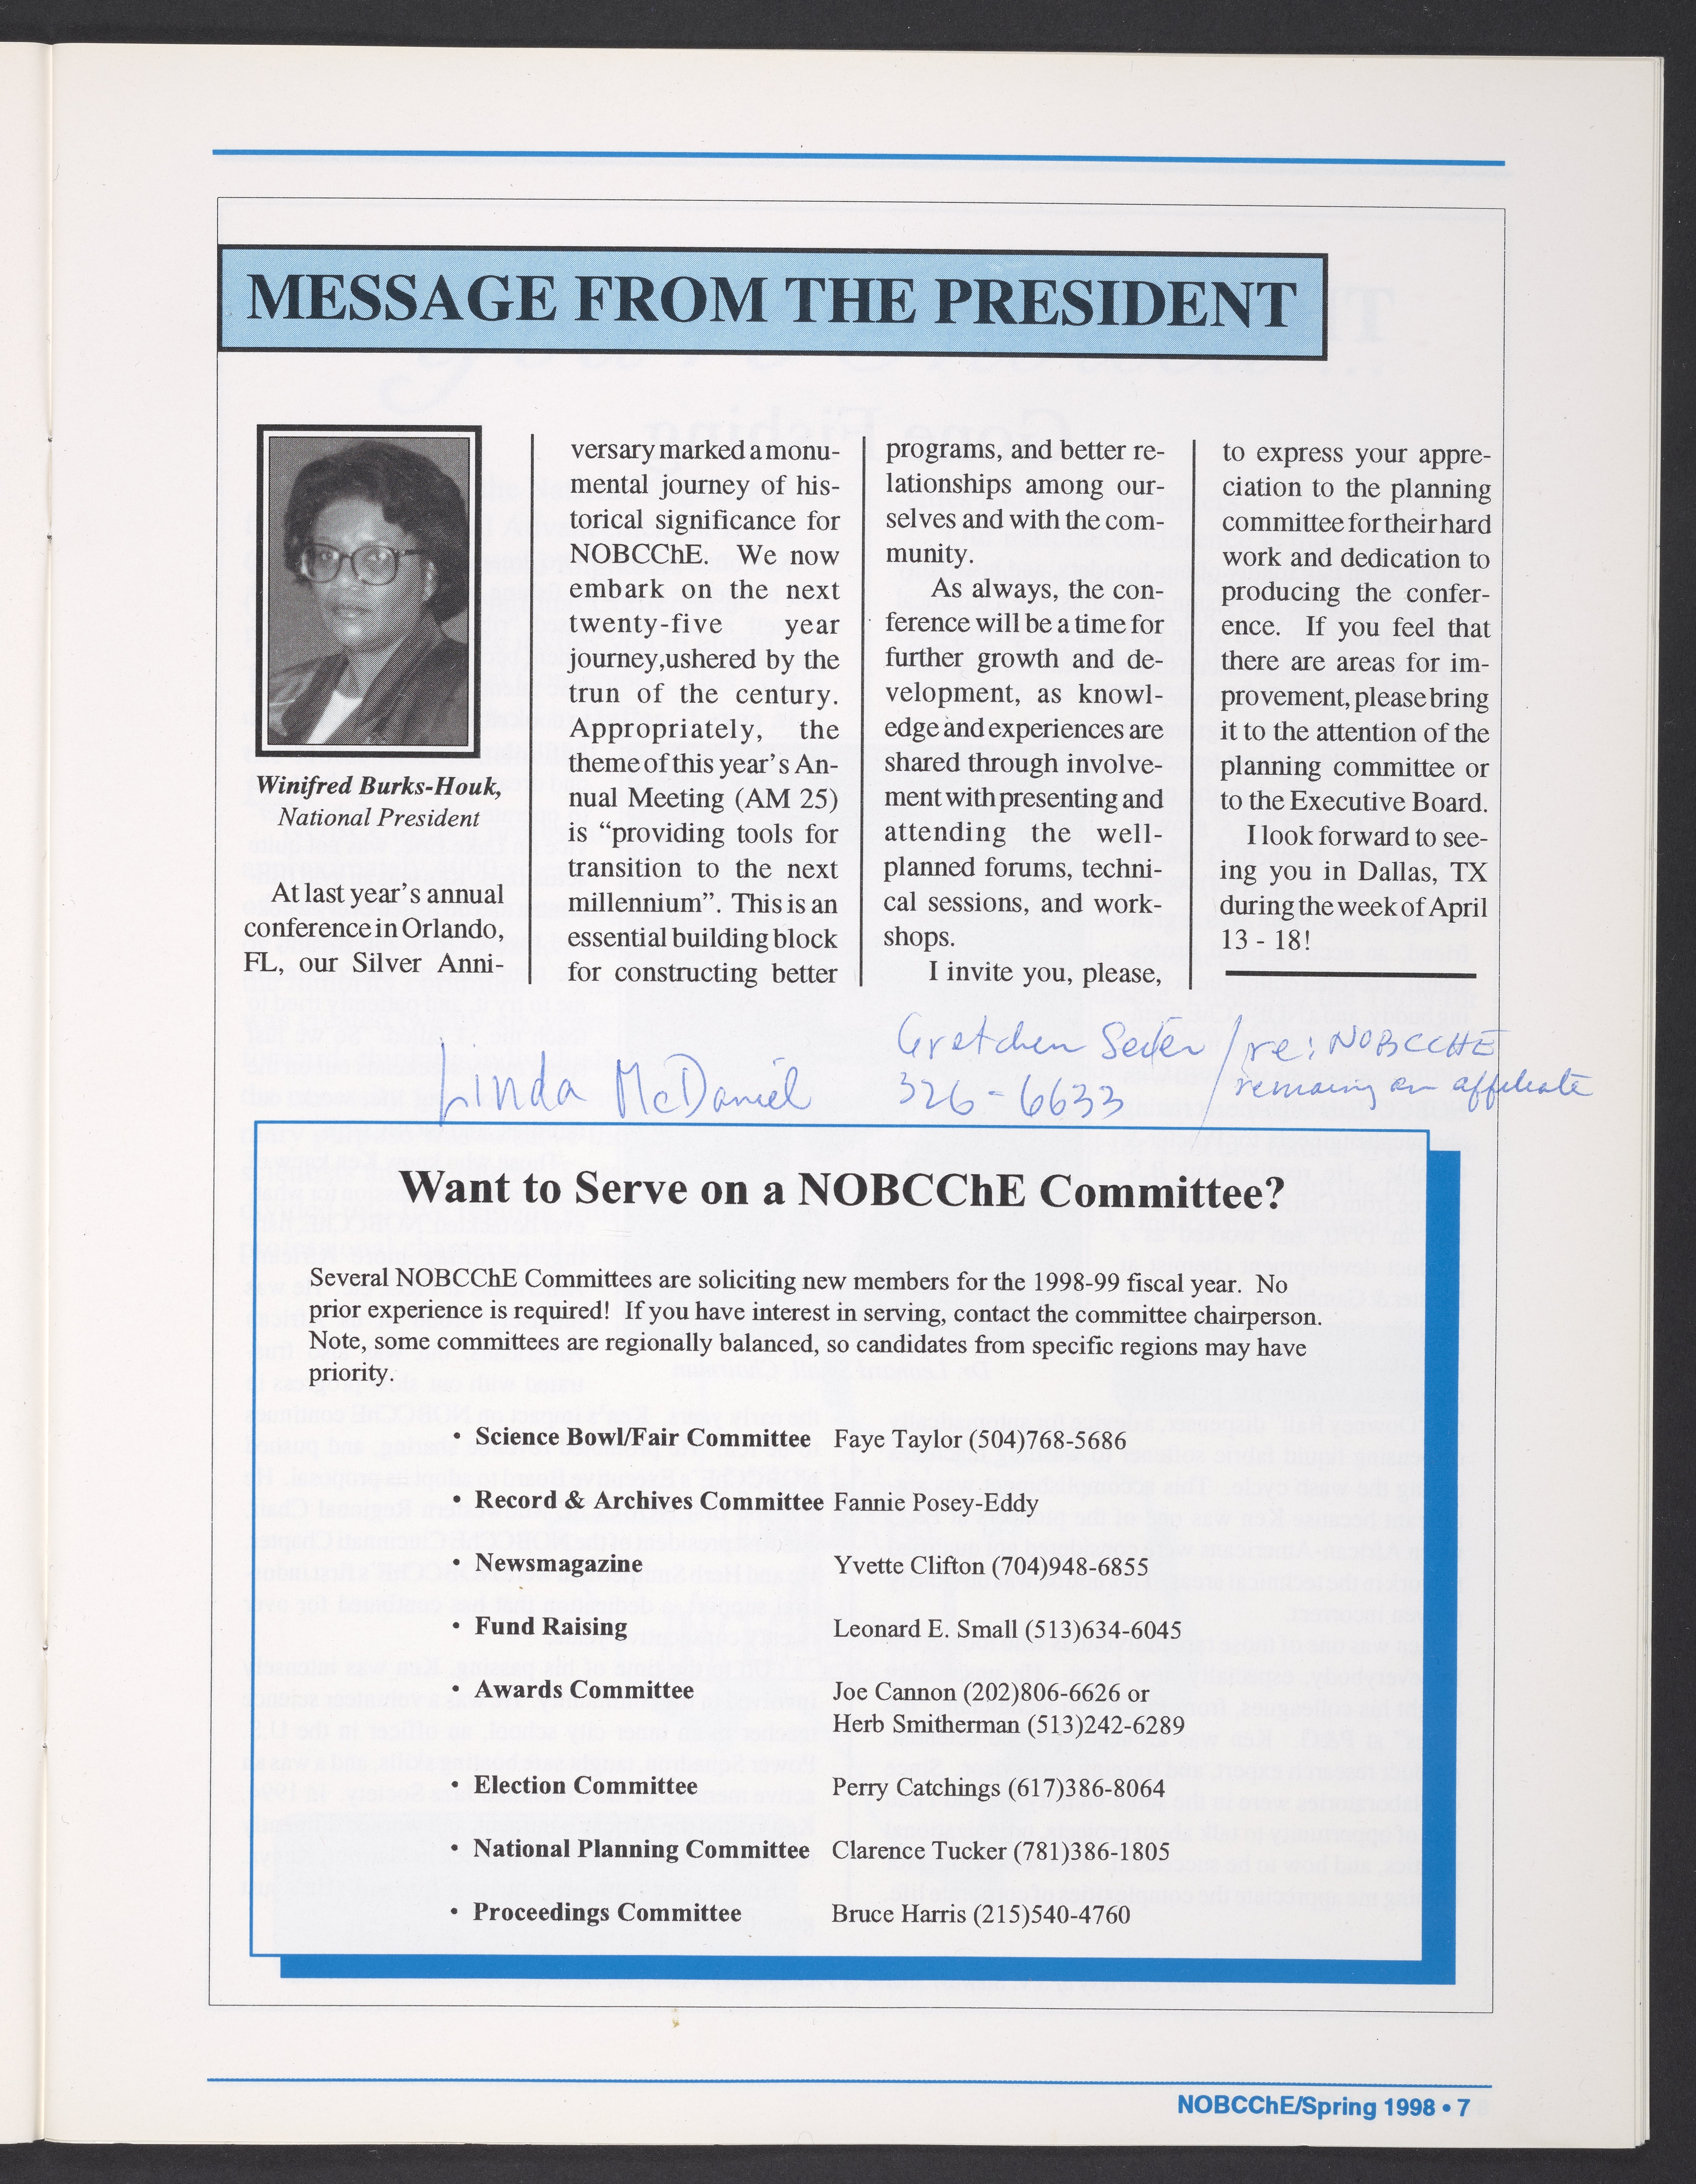 MESSAGE FROM THE PRESIDENT
Winifred Burks-Houk,
National President
At last year's annual
conference in Orlando,
FL, our Silver Anni-
versary marked a monu-
mental journey of his-
torical significance for
NOBCChE. We now
embark on the next
twenty-five year
journey,ushered by the
trun of the century.
Appropriately, the
theme of this year's An-
nual Meeting (AM 25)
is “providing tools for
transition to the next
millennium”. This is an
essential building block
for constructing better
programs, and better re-
lationships among our-
selves and with the com-
munity.
As always, the con-
ference will be a time for
further growth and de-
velopment, as knowl-
edge and experiences are
shared through involve-
ment with presenting and
attending the well-
planned forums, techni-
cal sessions, and work-
shops.
I invite you, please,
to express your appre-
ciation to the planning
committee for their hard
work and dedication to
producing the confer-
ence. If you feel that
there are areas for im-
provement, please bring
it to the attention of the
planning committee or
to the Executive Board.
I look forward to see-
ing you in Dallas, TX
during the week of April
13 - 18!
Linda McDaniel
Gretchen / re: NOBCCHE
326-6633 / remaining an affiliate
Want to Serve on a NOBCChE Committee?
Several NOBCChE Committees are soliciting new members for the 1998-99 fiscal year. No
prior experience is required! If you have interest in serving, contact the committee chairperson.
Note, some committees are regionally balanced, so candidates from specific regions may have
priority.
• Science Bowl/Fair Committee Faye Taylor (504)768-5686
• Record & Archives Committee Fannie Posey-Eddy
• Newsmagazine Yvette Clifton (704)948-6855
• Fund Raising Leonard E. Small (513)634-6045
• Awards Committee Joe Cannon (202)806-6626 or
Herb Smitherman (513)242-6289
• Election Committee Perry Catchings (617)386-8064
• National Planning Committee Clarence Tucker (781)386-1805
• Proceedings Committee Bruce Harris (215)540-4760
NOBCChE/Spring 1998 • 7